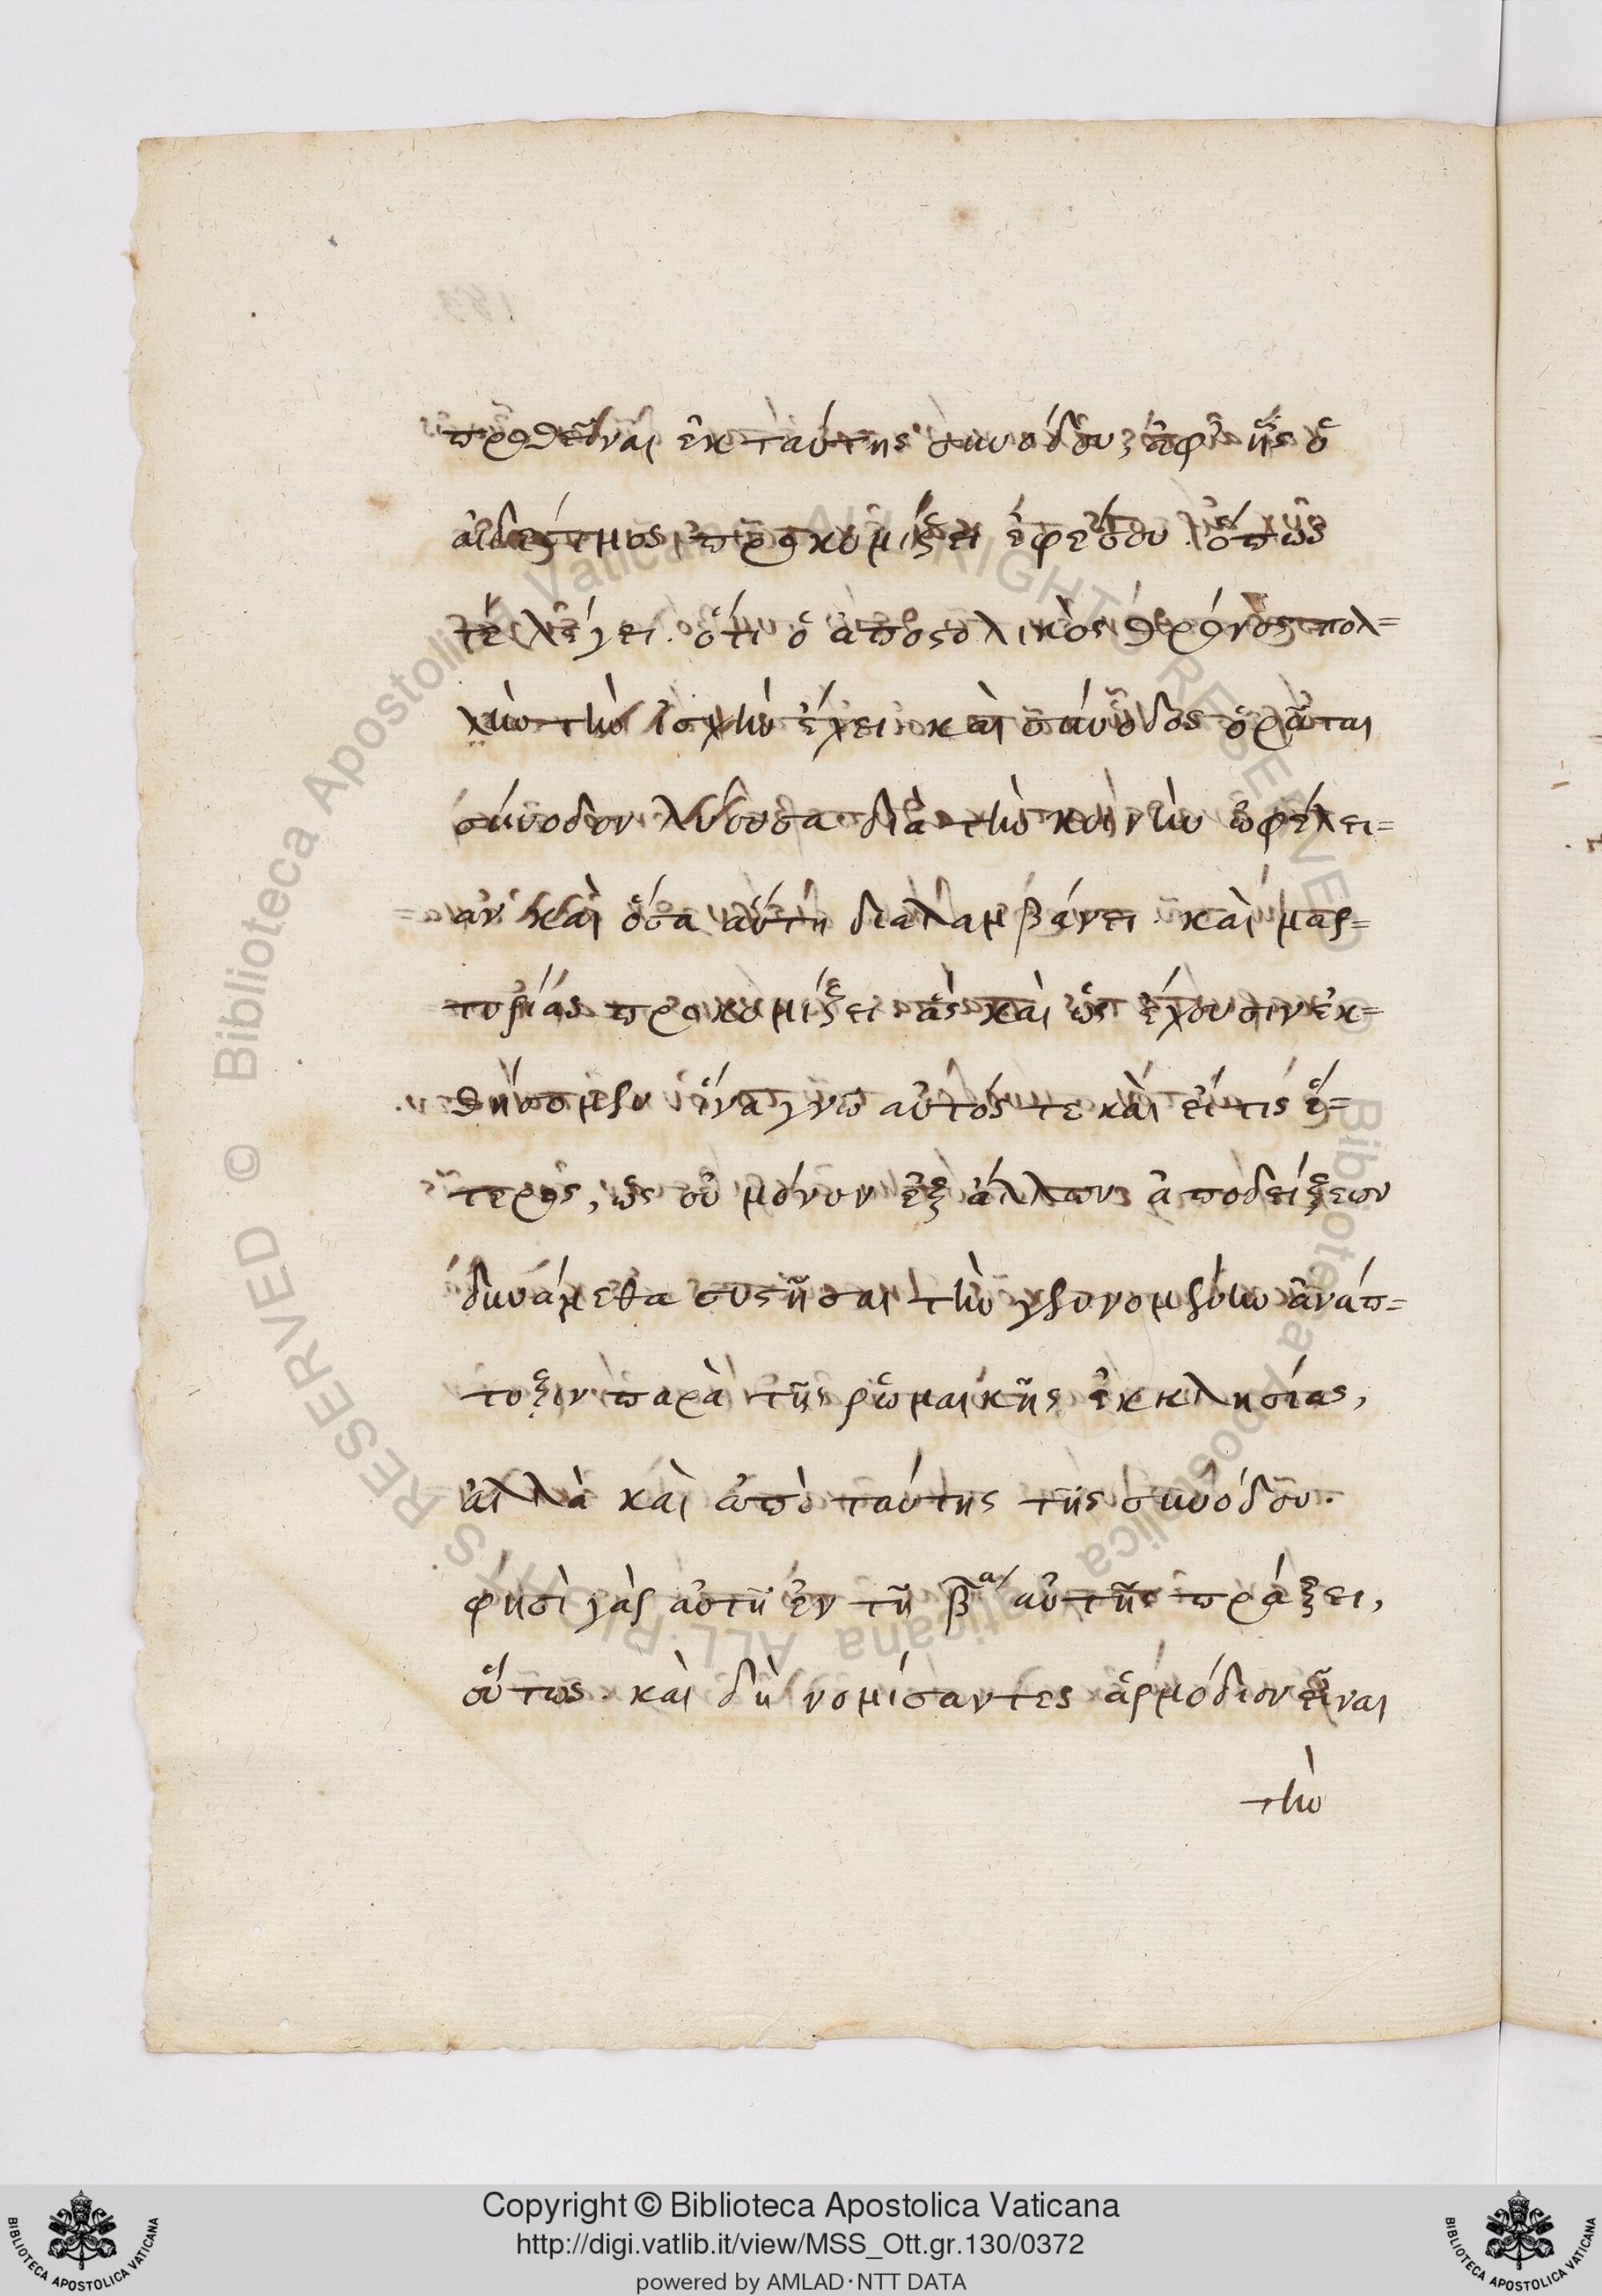 προθεῖναι ἐκ ταύτης συνόδου, ἀφ' ἧς ὁ
αἰδεσιμος προκομίζει ἐφέσου. ὅπως
τὲ λέγει. ὅτι ὁ ἀποστολικὸς θρόνος πολ=
λὴν τὴν ἰσχὺν ἔχει καὶ σύνοδος ὁρᾶται
σύνοδον λύουσα διὰ τὴν κοινὴν ὠφέλει=
αν καὶ ὅσα αὕτη διαλαμβάνει. καὶ μαρ=
τυρίας προκομίζει ἃς καὶ ὡς ἔχουσιν ἐκ=
θήσομεν ἵνα γνῶ αὐτός τε καὶ εἴ τις ἕ=
τερος, ὡς οὐ μόνον ἐξ ἄλλων ἀποδείξεων
δυνάμεθα συστῆσαι τὴν γενομένην ἀνάπ=
τυξιν παρὰ τῆς ῥωμαικῆς ἐκκλησίας,
ἀλλὰ καὶ ἀπὸ ταύτης τῆς συνόδου.
φησὶ γὰρ αὐτὴ ἐν τῇ βα αὐτῆς πράξει,
οὕτως. καὶ δὴ νομίσαντες ἁρμόδιον εἶναι
τὴν
Copyright © Biblioteca Apostolica Vaticana
http://digi.vatlib.it/view/MSS_Ott.gr.130/0372
powered by AMLAD·NTT DATA